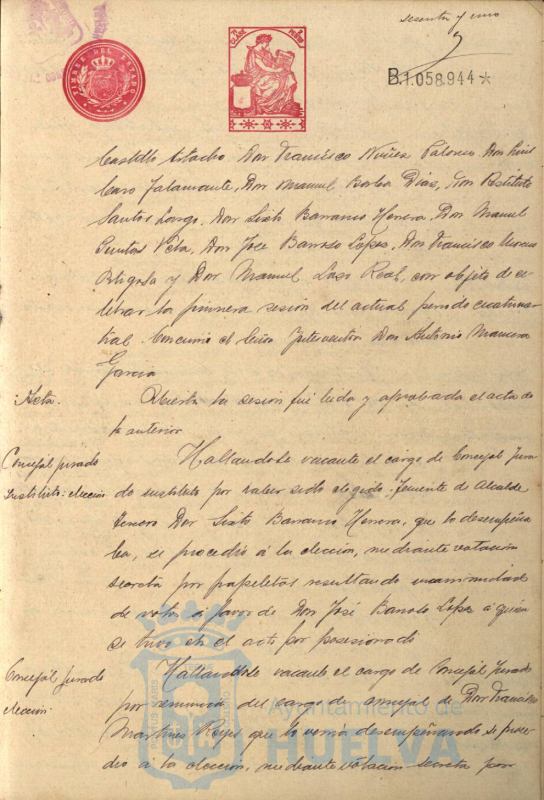 sesenta y uno
TIMBRE DEL ESTADO
B.1.058.944*
Castillo Don Francisco Nuñez Palomo Don Luis
Caro Don Manuel Borba Dias, Don Restituto
Santos Longo, Don Sixto Barranco Herrera, Don Manuel
Puntas Vela, Don Jose Barroso Lopez, Don Francisco
y Don Manuel Laso Real, con objeto de ce
lebrar la primera sesión del actual periodo cuatrimes
tral. Concurrió el Señor Interventor Don Antonio
Garcia
Acta.
Abierta la sesión fué leida y aprobada el acta de
la anterior
Concejal jurado
sustituto: elección
Hallandose vacante el cargo de Concejal Jura
do sustituto por haber sido elegido Teniente de Alcalde
tercero Don Sixto Barranco Herrera, que lo desempeña
ba, se procedió á la elección, mediante votación
secreta por papeletas resultando unanimidad
de votos á favor de Don José Barroso Lopez á quien
se tuvo en el acto por posesionado
Concejal Jurado
elección:
Hallandose vacante el cargo de Concejal Jurado
por renuncia del cargo de concejal de Don Francisco
Martinez Reyes que lo venia desempeñando se proce
dió á la elección, mediante votación secreta por
Ayuntamiento de
HUELVA